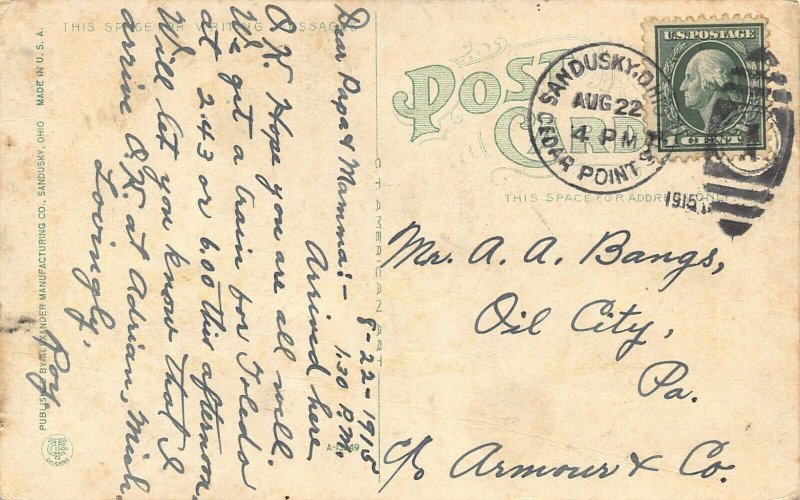 THIS SPACE FOR WRITING MESSAGES
8-22-1915
1:30 P.M.
Dear Papa & Mamma:-
Arrived here
O.K. Hope you are all well.
We get a train for Toledo
at 2.43 or 6.00 this afternoon.
Will let you know that I
arrive O.K. at Adrian, Mich.
Lovingly,
Roy
PUBLISHED BY ALEXANDER MANUFACTURING CO., SANDUSKY, OHIO
MADE IN U.S.A.
POST
CARD
SANDUSKY, OHIO
AUG 22
4 PM
CEDAR POINT
1915
U.S. POSTAGE
1 CENT 1
THIS SPACE FOR ADDRESS ONLY
Mr. A. A. Bangs,
Oil City,
Pa.
c/o Armour & Co.